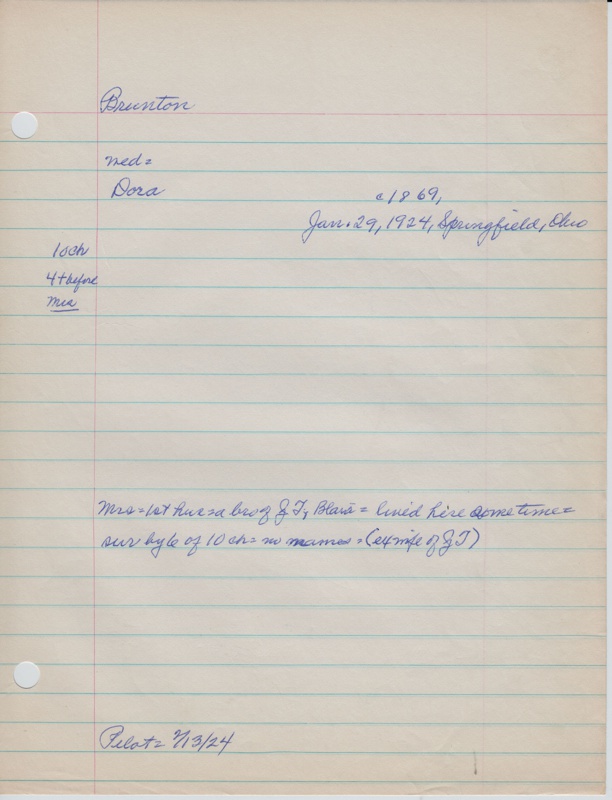 Brunton
Med=
Dora
c1869,
Jan. 29, 1924, Springfield, Ohio
10ch
4 + before
Mrs
Mrs=1st hus=a bro of J T, Blair= lived here sometime=
sur by 6 of 10 ch= no names=(ex wife of J T)
Pilot= 2/13/24